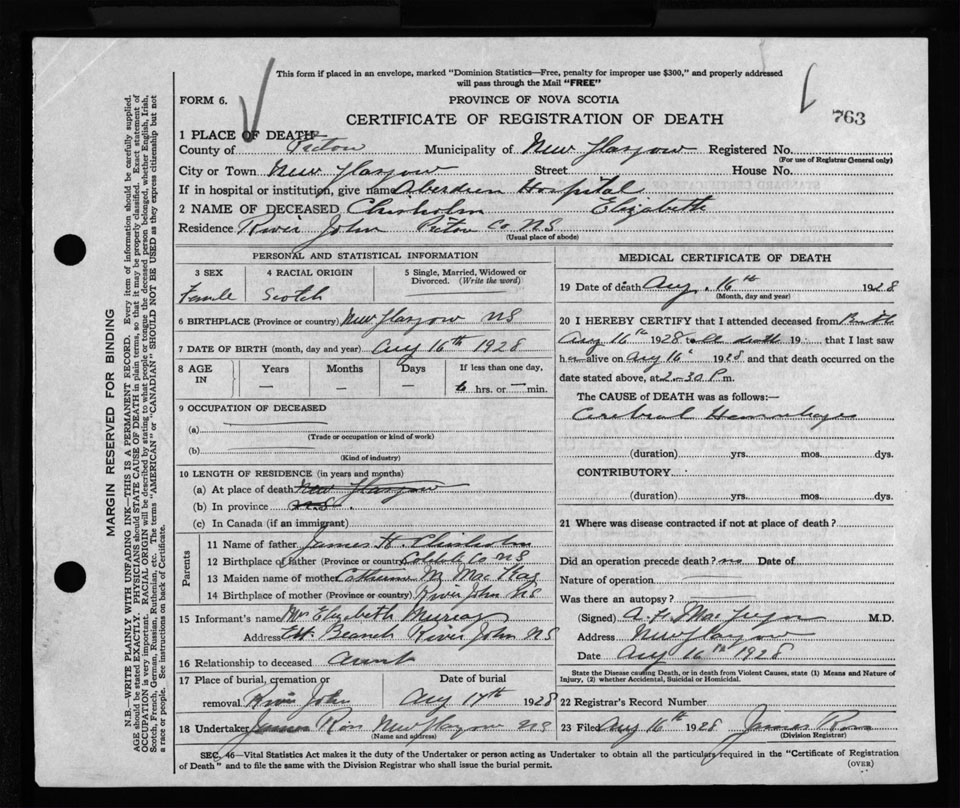 This form if placed in an envelope, marked "Dominion Statistics—Free, penalty for improper use $300," and properly addressed
will pass through the Mail "FREE"
FORM 6.
PROVINCE OF NOVA SCOTIA
CERTIFICATE OF REGISTRATION OF DEATH
763
1 PLACE OF DEATH
County of Pictou Municipality of New Glasgow Registered No.
(For use of Registrar General only)
City or Town New Glasgow Street House No.
If in hospital or institution, give name Aberdeen Hospital
2 NAME OF DECEASED Chisholm Elizabeth
Residence River John Pictou Co NS
(Usual place of abode)
PERSONAL AND STATISTICAL INFORMATION
3 SEX 4 RACIAL ORIGIN 5 Single, Married, Widowed or
Divorced. (Write the word)
Female Scotch
6 BIRTHPLACE (Province or country) New Glasgow NS
7 DATE OF BIRTH (month, day and year) Aug 16th 1928
8 AGE IN Years Months Days If less than one day,
— — — 6 hrs. or — min.
9 OCCUPATION OF DECEASED
(a)
(Trade or occupation or kind of work)
(b)
(Kind of industry)
10 LENGTH OF RESIDENCE (in years and months)
(a) At place of death New Glasgow
(b) In province N.S.
(c) In Canada (if an immigrant)
Parents
11 Name of father James H. Chisholm
12 Birthplace of father (Province or country) Co NS
13 Maiden name of mother Catherine M. MacKay
14 Birthplace of mother (Province or country) River John NS
15 Informant's name Mrs Elizabeth Murray
Address Branch River John NS
16 Relationship to deceased Aunt
17 Place of burial, cremation or Date of burial
removal River John Aug 17th 1928
18 Undertaker James Ross New Glasgow NS
(Name and address)
MEDICAL CERTIFICATE OF DEATH
19 Date of death Aug. 16th 1928
(Month, day and year)
20 I HEREBY CERTIFY that I attended deceased from Birth
Aug 16th 1928 to death 19 that I last saw
her alive on Aug 16th 1928 and that death occurred on the
date stated above, at 2-30 P m.
The CAUSE of DEATH was as follows:—
Cerebral Hemorrhage
(duration) yrs. mos. dys.
CONTRIBUTORY
(duration) yrs. mos. dys.
21 Where was disease contracted if not at place of death?
Did an operation precede death? no Date of
Nature of operation
Was there an autopsy?
(Signed) M.D.
Address New Glasgow
Date Aug 16th 1928
State the Disease causing Death, or in death from Violent Causes, state (1) Means and Nature of
Injury, (2) whether Accidental, Suicidal or Homicidal.
22 Registrar's Record Number
23 Filed Aug 16th 1928 James Ross
(Division Registrar)
SEC. 46—Vital Statistics Act makes it the duty of the Undertaker or person acting as Undertaker to obtain all the particulars required in the "Certificate of Registration
of Death" and to file the same with the Division Registrar who shall issue the burial permit.
(OVER)
MARGIN RESERVED FOR BINDING
N.B.—WRITE PLAINLY WITH UNFADING INK—THIS IS A PERMANENT RECORD. Every item of information should be carefully supplied.
AGE should be stated EXACTLY. PHYSICIANS should STATE CAUSE OF DEATH in plain terms, so that it may be properly classified. Exact statement of
OCCUPATION is very important. RACIAL ORIGIN will be described by stating to what people or tongue the deceased person belonged, whether English, Irish,
Scotch, French, German, Russian, Ruthenian, etc. The terms "AMERICAN" or "CANADIAN" SHOULD NOT BE USED as they express citizenship but not
a race or people. See instructions on back of Certificate.